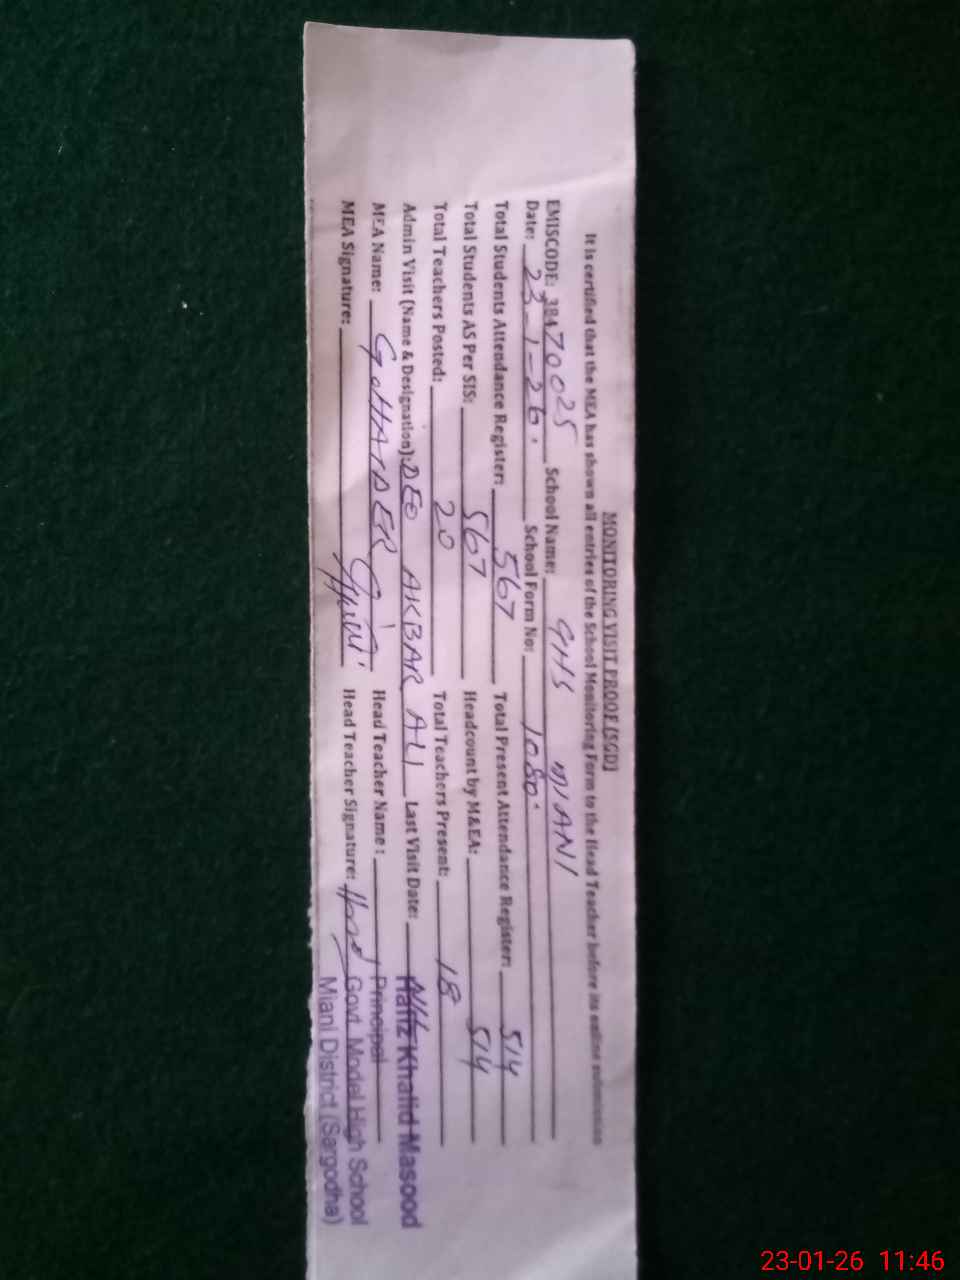 MONITORING VISIT PROOF [SGD]
It is certified that the MEA has shown all entries of the School Monitoring Form to the Head Teacher before its online submission
EMISCODE: 38470025 School Name: GHS MIANI
Date: 23-1-26. School Form No: 1080.
Total Students Attendance Register: 567 Total Present Attendance Register: 514
Total Students AS Per SIS: 567 Headcount by M&EA: 514
Total Teachers Posted: 20 Total Teachers Present: 18
Admin Visit (Name & Designation): DEO AKBAR ALI Last Visit Date:
MEA Name: Head Teacher Name :
MEA Signature: Head Teacher Signature:
Hafiz Khalid Masood
Principal
Govt. Model High School
Miani District (Sargodha)
23-01-26 11:46